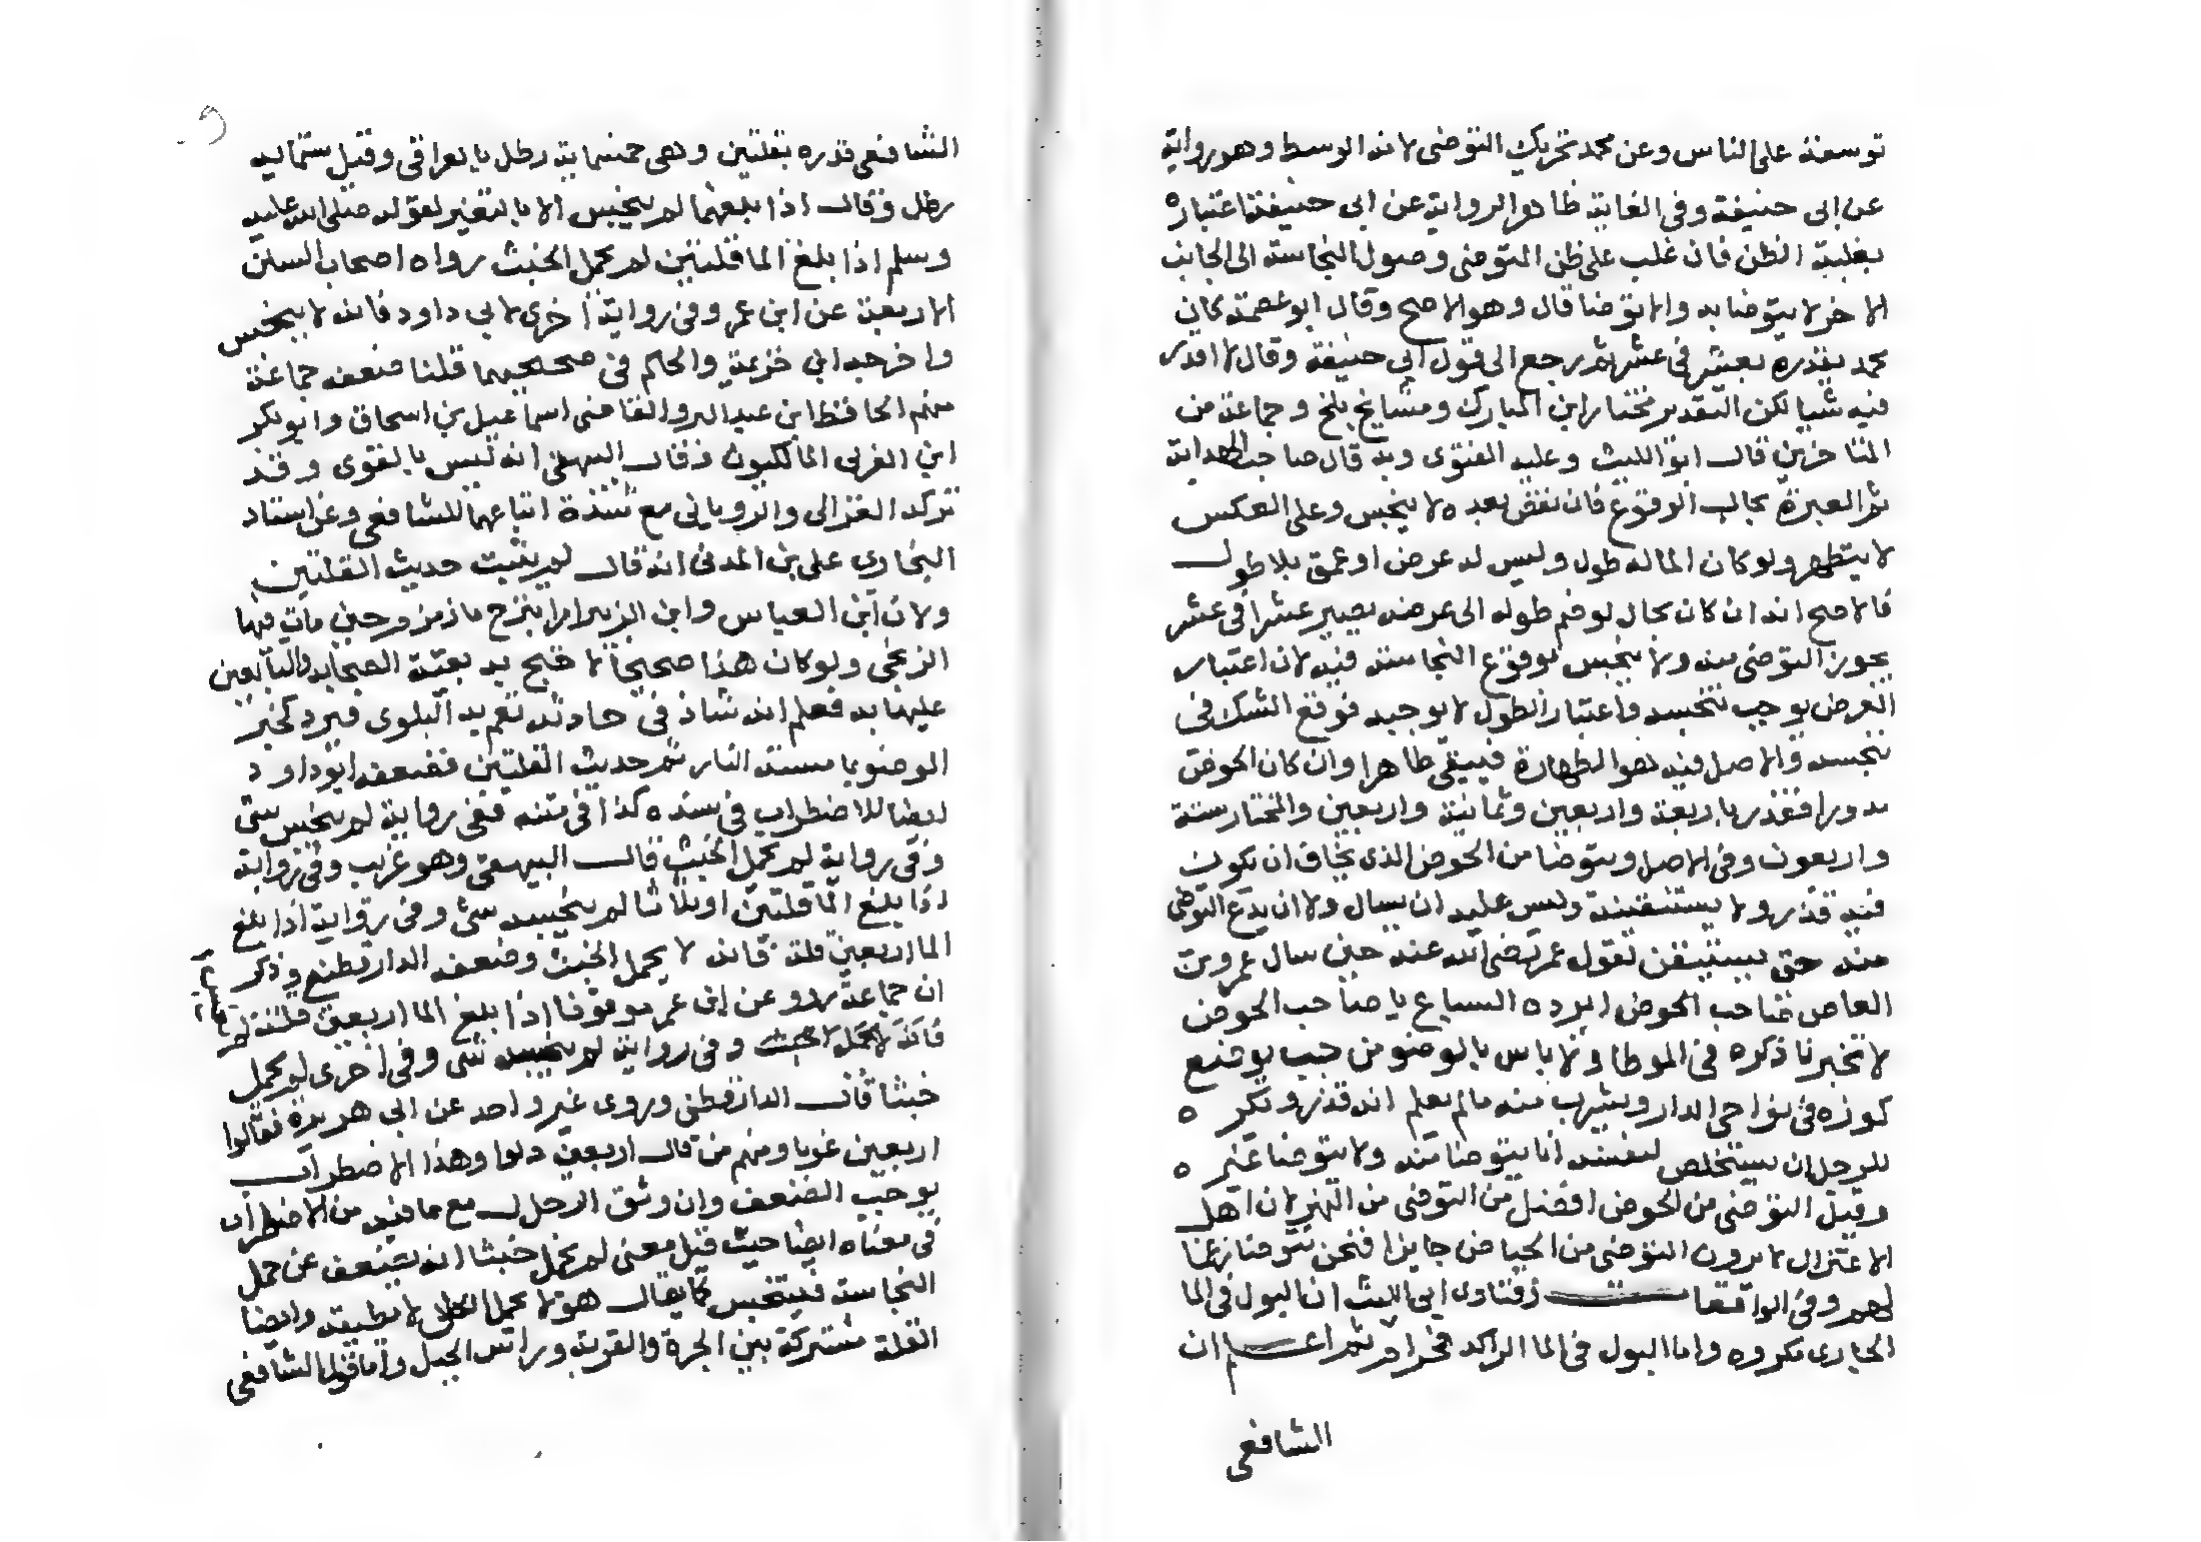 توسعة على الناس وعن محمد تحريك التوضى لانه الوسط وهو رواية
عن ابى حنيفة وفى الغاية ظاهر الرواية عن ابى حنيفة اعتباره
بغلبة الظن فان غلب على ظن المتوضى وصول النجاسة الى الجانب
الاخر لا يتوضا به والا توضا قال وهو الاصح وقال ابو عصمة كان
محمد يقدره بعشر فى عشر ثم رجع الى قول ابى حنيفة وقال لا اقدر
فيه شيا لكن التقدير مختار ابن المبارك ومشايخ بلخ وجماعة من
المتاخرين قال ابو الليث وعليه الفتوى وبه قال صاحب الهداية
ثم العبرة بحالة الوقوع فان نقص بعده لا ينجس وعلى العكس
لا يتطهر ولو كان الماله طول وليس له عرض او عمق بلا طول
فالاصح انه ان كان بحال لو ضم طوله الى عرضه يصير عشرا فى عشر
يجوز التوضى منه ولا ينجس بوقوع النجاسة فيه لان اعتبار
العرض يوجب تنجسه واعتبار الطول لا يوجبه فوقع الشك فى
تنجسه والاصل فيه هو الطهارة فيبقى طاهرا وان كان الحوض
مدورا فقدر باربعة واربعين وثمانية واربعين والمختار ستة
واربعون وفى الاصل ويتوضا من الحوض الذى يخاف ان يكون
فيه قذر ولا يستيقنه وليس عليه ان يسال ولا ان يدع التوضى
منه حتى يستيقن لقول عمر رضى الله عنه حين سال عمرو بن
العاص صاحب الحوض ايرده السباع يا صاحب الحوض
لا تخبرنا ذكره فى الموطا ولا باس بالوضو من حب يوضع
كوزه فى نواحى الدار ويشرب منه مالم يعلم انه قذر ويكره
للرجل ان يستخلص لنفسه انا يتوضا منه ولا يتوضا غيره
وقيل التوضى من الحوض افضل من التوضى من النهر لان اهل
الاعتزال لا يرون التوضى من الحياض جايزا فنحن نتوضا رغما
لهم وفى الواقعات وفتاوى ابى الليث ان البول فى الما
الجارى مكروه واما البول فى الما الراكد فحرام ثم اعلم ان
الشافعى
الشافعى قدره بقلتين وهى خمسماية رطل بالعراقى وقيل ستماية
رطل وقال اذا بلغهما لم ينجس الا بالتغير لقوله صلى الله عليه
وسلم اذا بلغ الما قلتين لم يحمل الخبث رواه اصحاب السنن
الاربعة عن ابن عمر وفى رواية اخرى لابى داود فانه لا ينجس
واخرجه ابن خزيمة والحاكم فى صحيحيهما قلنا ضعفه جماعة
منهم الحافظ ابن عبد البر والقاضى اسماعيل بن اسحاق وابو بكر
ابن العربى المالكيون وقال البيهقى انه ليس بالقوى وقد
تركه الغزالى والرويانى مع شدة اتباعهما للشافعى وعن استاد
البخارى على بن المدنى انه قال لم يثبت حديث القلتين
ولان ابن العباس وابن الزبير امرا بنزح ما زمزم حين مات فيها
الزنجى ولو كان هذا صحيحا لاحتج به بقية الصحابة والتابعين
عليهما به فعلم انه شاذ فى حادثة تعم به البلوى فيرد كخبر
الوضو بما مسته النار ثم حديث القلتين فضعفه ابو داود
ايضا للاضطراب فى سنده كذا فى متنه ففى رواية لم ينجس شى
وفى رواية لم يحمل الخبث قال البيهقى وهو غريب وفى رواية
اذا بلغ الما قلتين او ثلاثا لم ينجسه شى وفى رواية اذا بلغ
الما اربعين قلة فانه لا يحمل الخبث وضعفه الدارقطنى وذكر
ان جماعة رووعن ابن عمر موقوفا اذا بلغ الما اربعين قلة لم
فانه لا يحمل الخبث وفى رواية لم ينجسه شى وفى اخرى لم يحمل
خبثا قال الدارقطنى وروى غير واحد عن ابى هريرة فقالوا
اربعين غربا ومنهم من قال اربعين دلوا وهذا الاضطراب
يوجب الضعف وان وثق الرجال مع ما فيه من الاضطراب
فى معناه ايضا حيث قيل معنى لم يحمل خبثا انه يضعف عن حمل
النجاسة فيتنجس كما يقال هو لا يحمل الكل لا يطيقه وايضا
القلة مشتركة بين الجرة والقربة وراس الجبل واما قول الشافعى